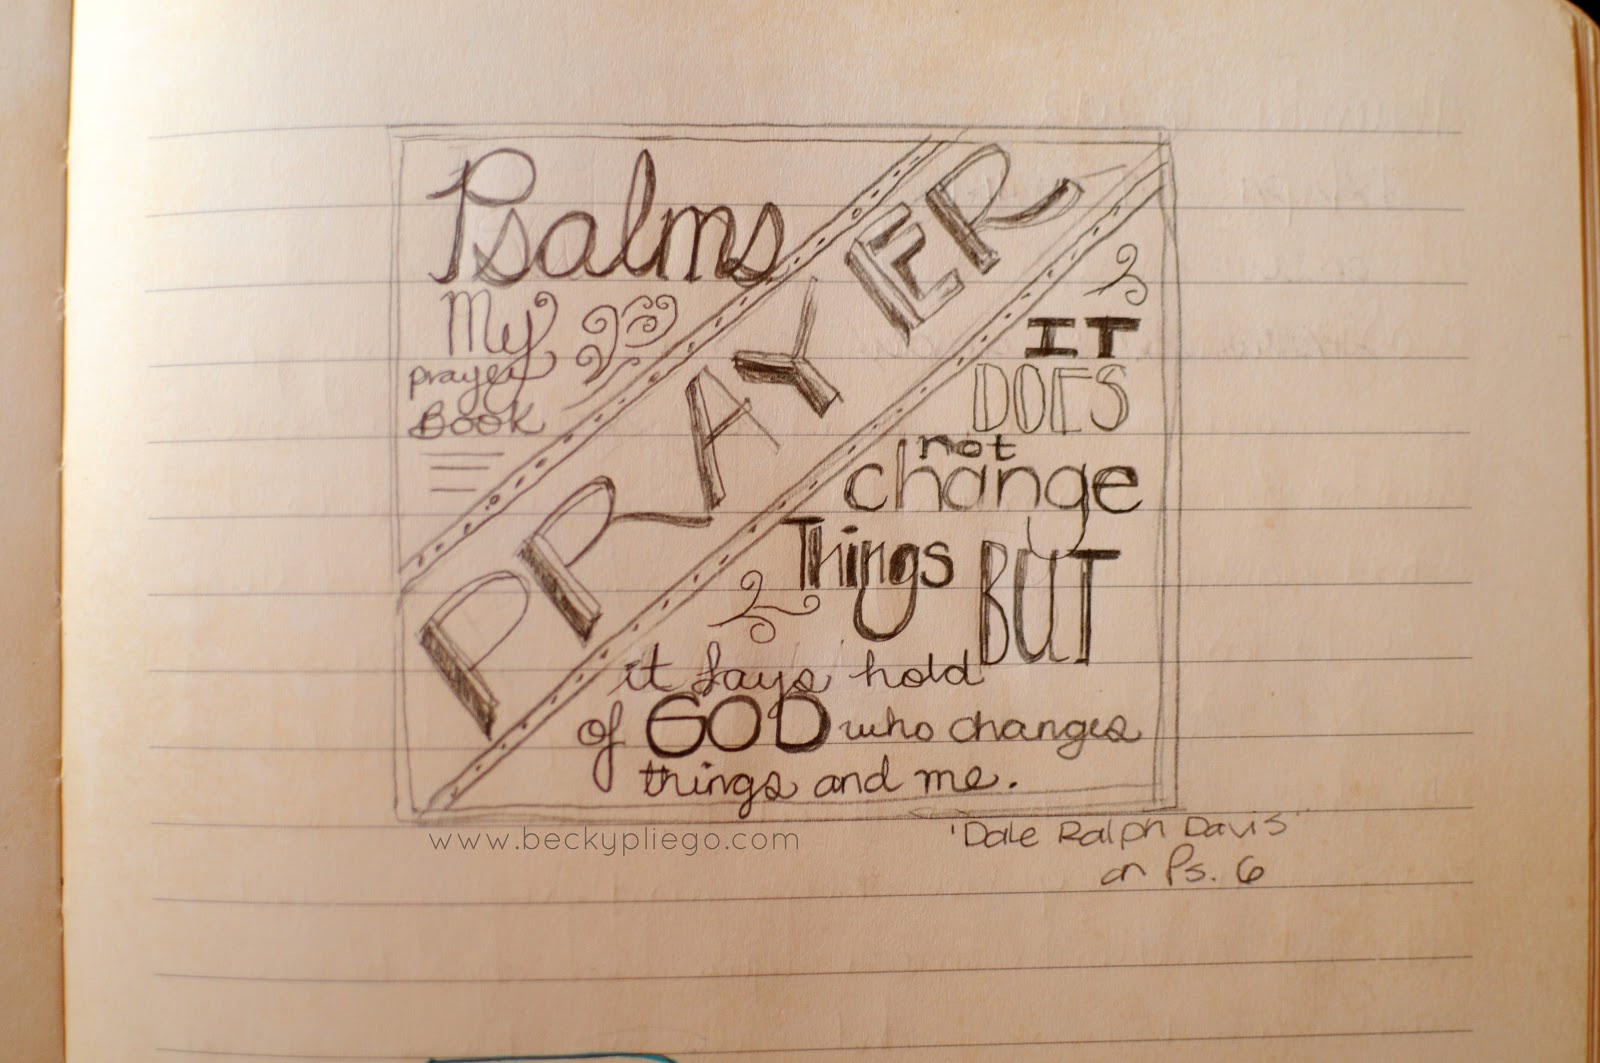 Psalms
My
prayer
Book
PRAYER
IT
DOES
not
change
Things BUT
it lays hold
of GOD who changes
things and me.
www.beckypliego.com
'Dale Ralph Davis'
on Ps. 6